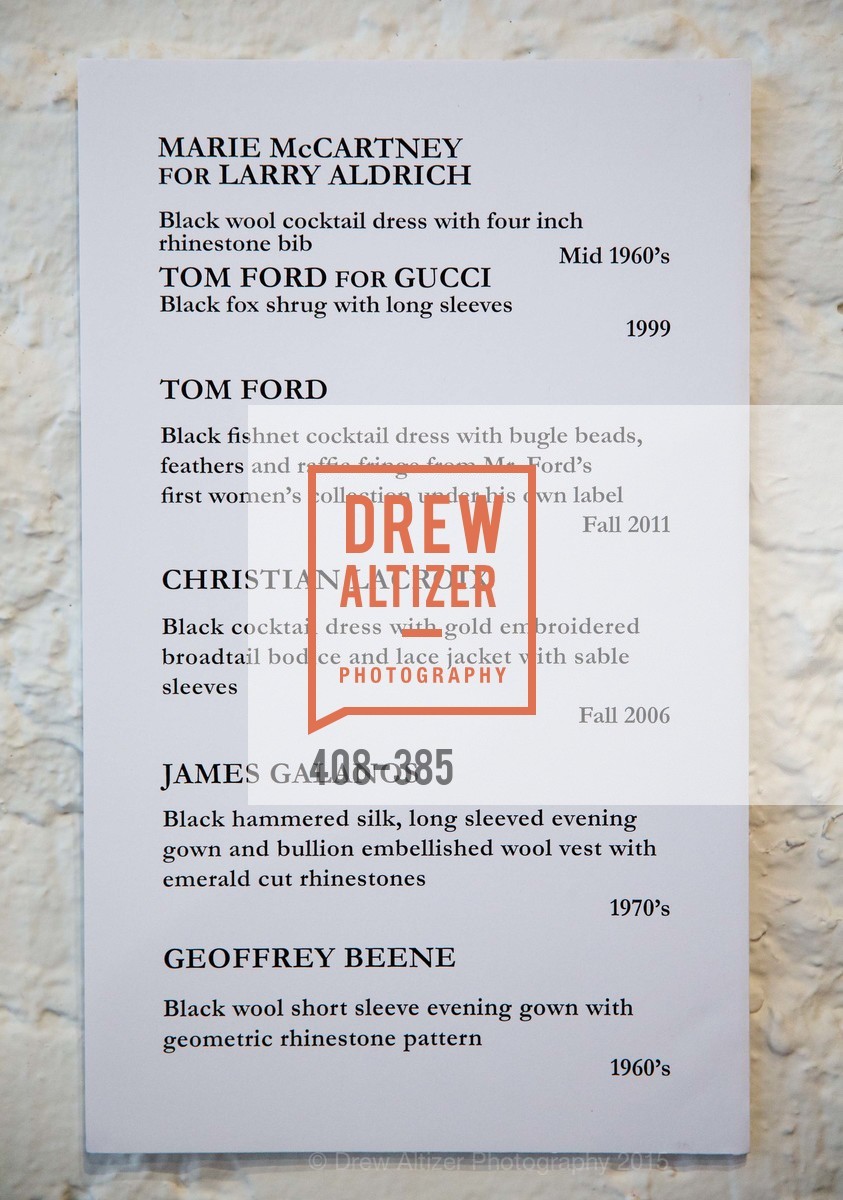 MARIE McCARTNEY
FOR LARRY ALDRICH
Black wool cocktail dress with four inch
rhinestone bib
Mid 1960's
TOM FORD FOR GUCCI
Black fox shrug with long sleeves
1999
TOM FORD
Black fishnet cocktail dress with bugle beads,
feathers and raffia fringe from Mr. Ford's
first women's collection under his own label
Fall 2011
CHRISTIAN LACROIX
Black cocktail dress with gold embroidered
broadtail bodice and lace jacket with sable
sleeves
Fall 2006
DREW
ALTIZER
PHOTOGRAPHY
408-385
JAMES GALANOS
Black hammered silk, long sleeved evening
gown and bullion embellished wool vest with
emerald cut rhinestones
1970's
GEOFFREY BEENE
Black wool short sleeve evening gown with
geometric rhinestone pattern
1960's
© Drew Altizer Photography 2015